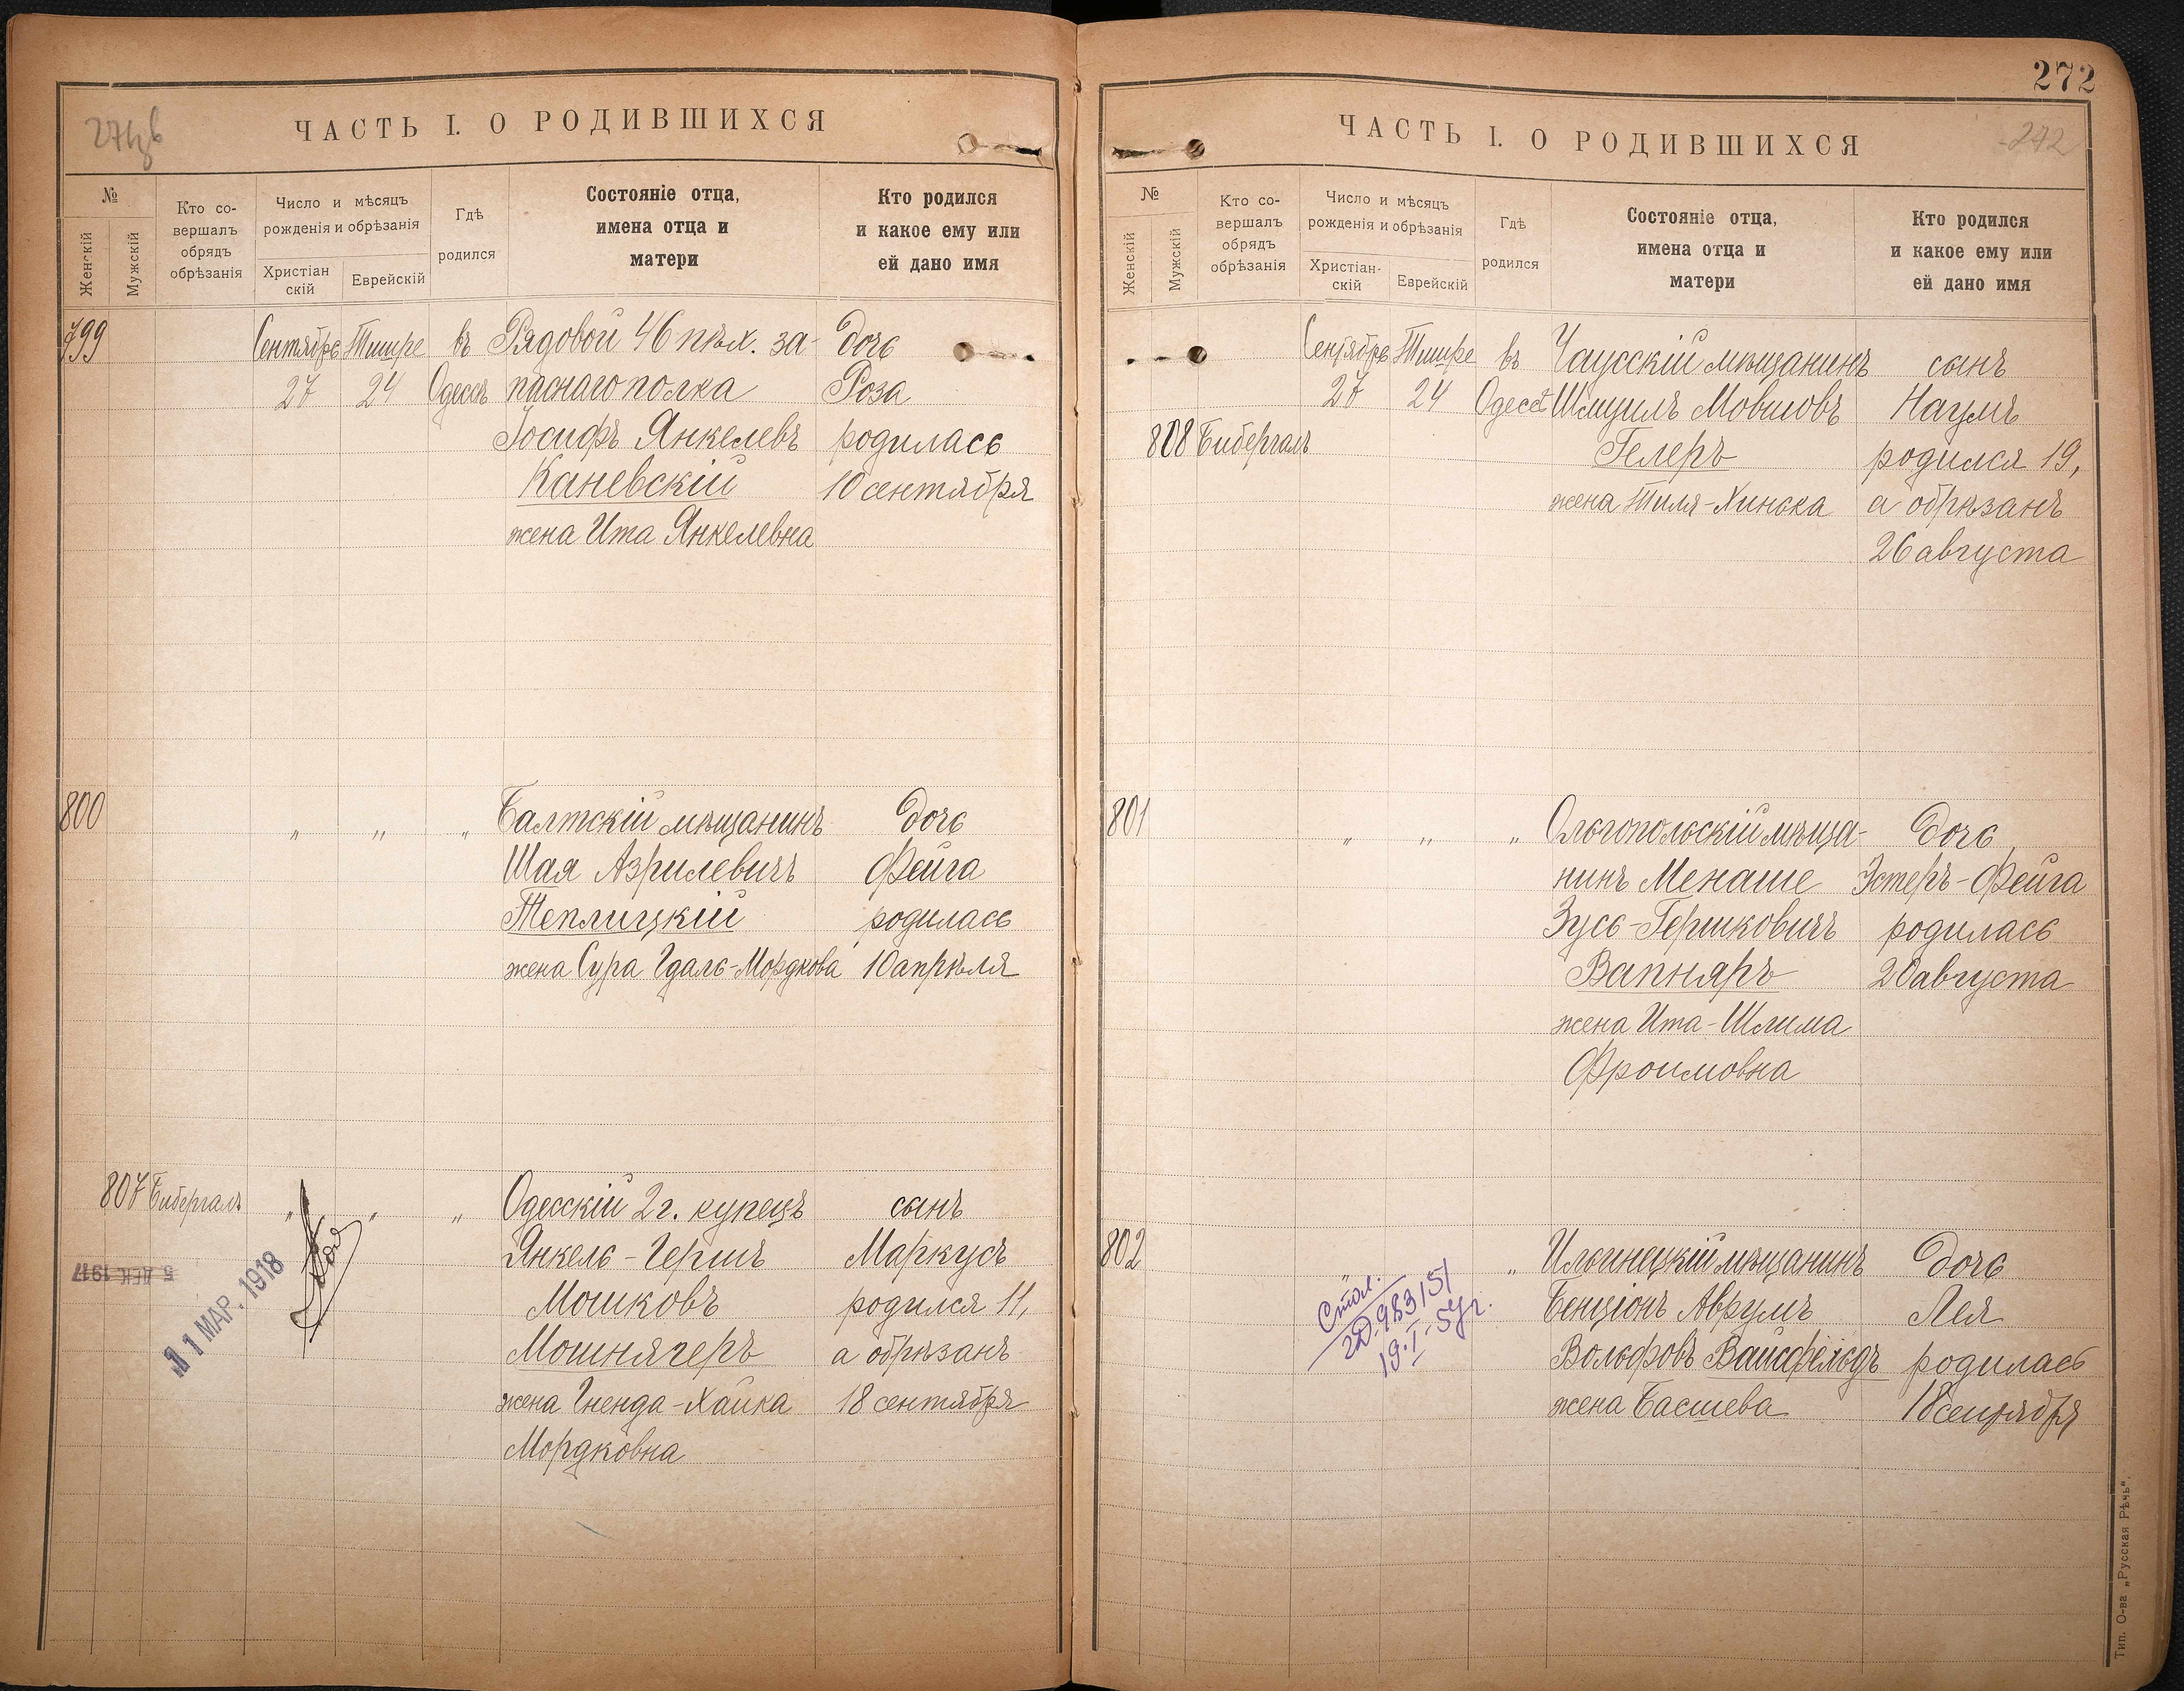 ЧАСТЬ I. О РОДИВШИХСЯ
№
Женскій
Мужскій
Кто со-
вершалъ
обрядъ
обрѣзанія
Число и мѣсяцъ
рожденія и обрѣзанія
Христіан
скій
Еврейскій
Гдѣ
родился
Состояніе отца,
имена отца и
матери
Кто родился
и какое ему или
ей дано имя
799
Сентябрь
27
Тишре
24
въ
Одессѣ
Рядовой 46 пѣх. за-
паснаго полка
Іосифъ Янкелевъ
Каневскій
жена Ита Янкелевна
Дочь
Роза
родилась
10 сентября
800
" " "
Балтскій мѣщанинъ
Шая Азрилевичъ
Теплицкій
жена Сура Гдаль-Мордкова
Дочь
Фейга
родилась
10 апрѣля
807 Бибергалъ
" " "
Одесскій 2 г. купецъ
Янкель-Гершъ
Мошковъ
Мошнягеръ
жена Гненда-Хайка
Мордковна
сынъ
Маркусъ
родился 11,
а обрѣзанъ
18 сентября
5 ДЕК 1917
11 МАР. 1918
272
ЧАСТЬ I. О РОДИВШИХСЯ
272
№
Женскій
Мужскій
Кто со-
вершалъ
обрядъ
обрѣзанія
Число и мѣсяцъ
рожденія и обрѣзанія
Христіан-
скій
Еврейскій
Гдѣ
родился
Состояніе отца,
имена отца и
матери
Кто родился
и какое ему или
ей дано имя
808 Бибергалъ
Сентябрь
27
Тишре
24
въ
Одессѣ
Чаусскій мѣщанинъ
Шмуилъ Мовшовъ
Гелеръ
жена Тиля-Хинька
сынъ
Наумъ
родился 19,
а обрѣзанъ
26 августа
801
" " "
Ольгопольскій мѣща-
нинъ Менаше
Зусь-Гершковичъ
Вапняръ
жена Ита-Шлима
Фроимовна
Дочь
Эстеръ-Фейга
родилась
20 августа
802
" "
Ильинецкій мѣщанинъ
Бенціонъ Аврумъ
Вольфовъ Вайсфельдъ
жена Басшева
Дочь
Лея
родилась
18 сентября
19.I-54 г.
Тип. О-ва „Русская Рѣчь".